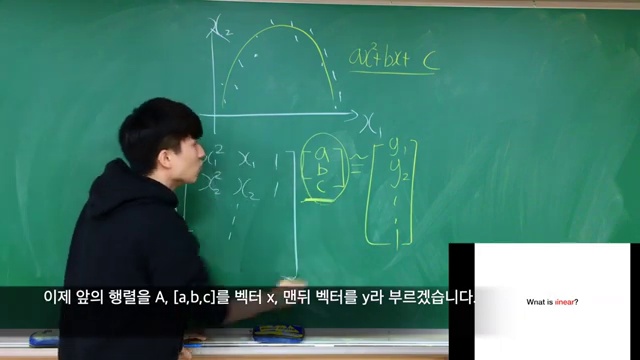 x₂
ax²+bx+ c
x₁
x₁² x₁ 1 a ≃ y₁
x₂² x₂ 1 b y₂
c
이제 앞의 행렬을 A, [a,b,c]를 벡터 x, 맨뒤 벡터를 y라 부르겠습니다.
What is linear?